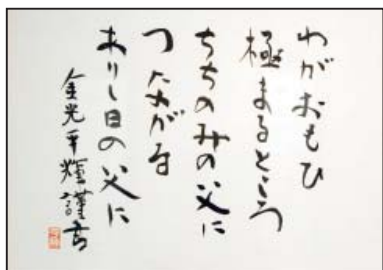 わがおもひ
極まるところ
ちちのみの父に
つながる
ありし日の父に
金光平輝謹書